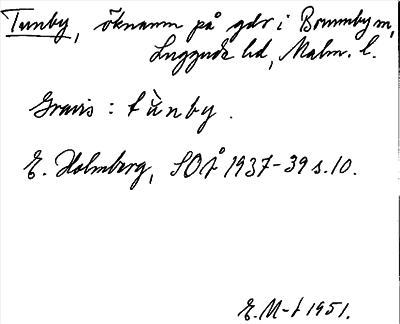 Tunby, öknamn på gdr i Brunnby sn,
Luggude hd, Malm. l.
Gravis : tùnby .
E. Holmberg, SOÅ 1937-39 s. 10.
E. M-t 1951.